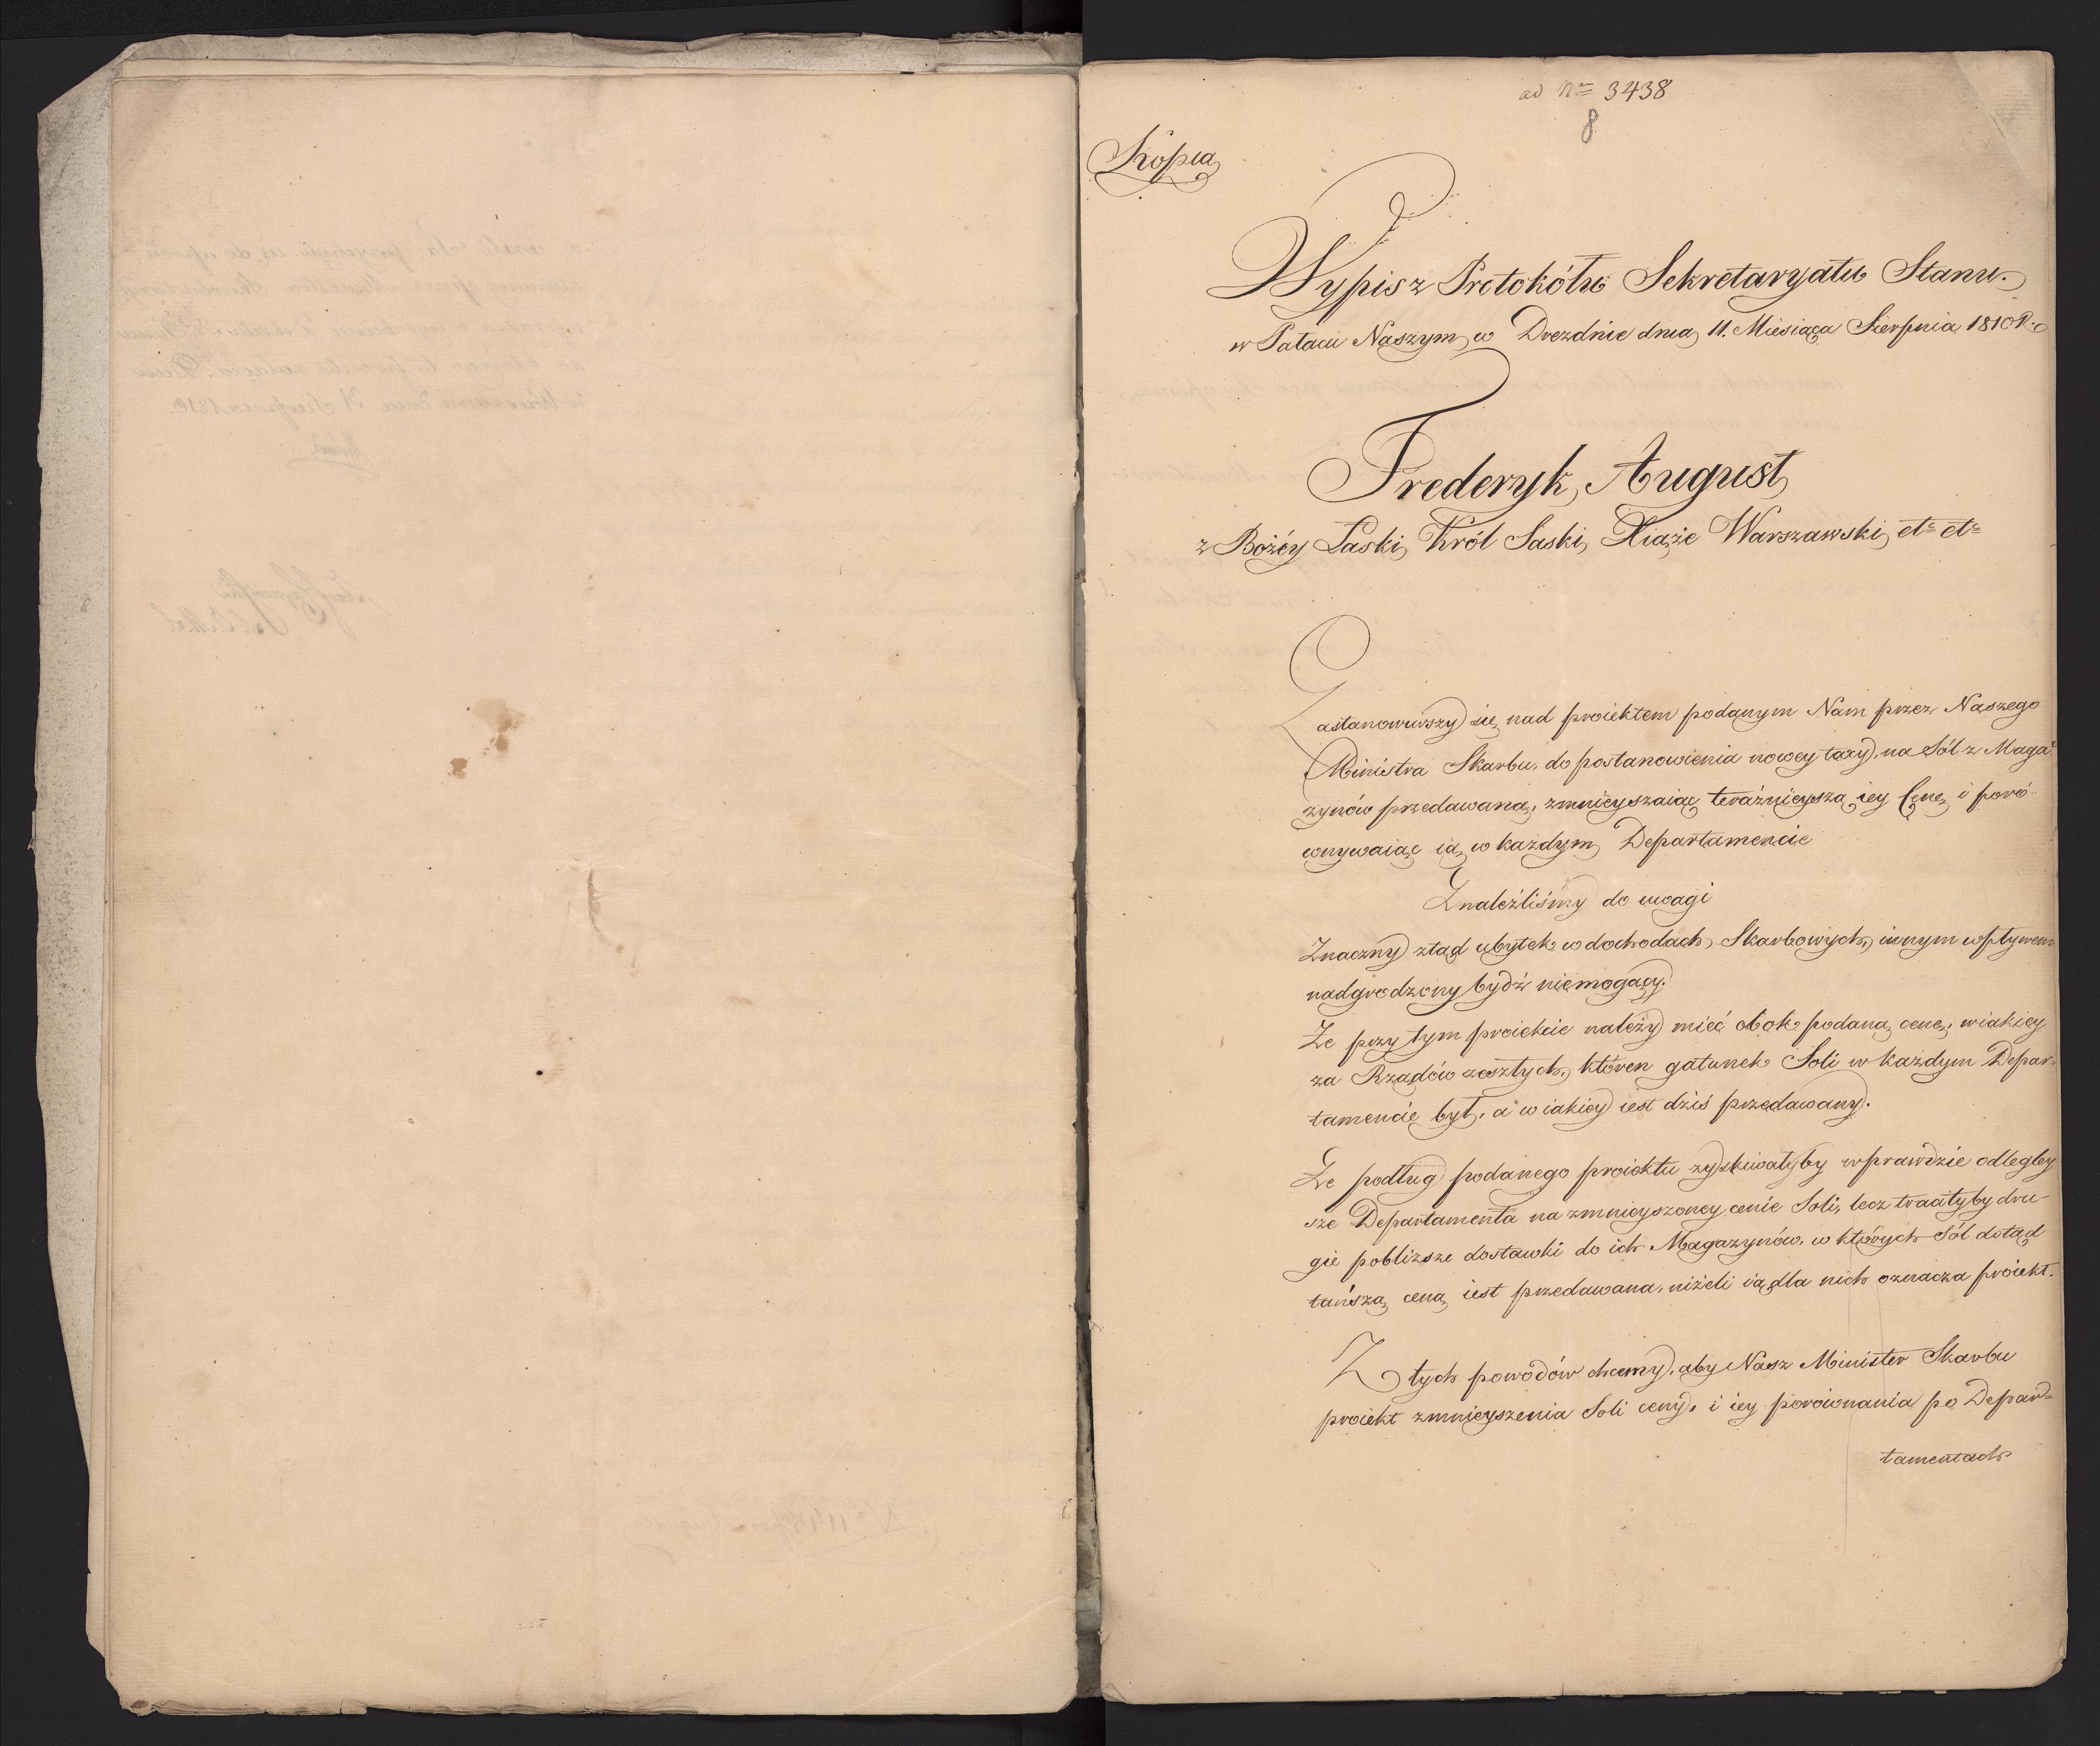 ad Nrm 3438
8
Kopia
Wypis z Protokółu Sekretaryatu Stanu.
w Pałacu Naszym w Dreznie dnia 11. Miesiąca Sierpnia 1810 R.
Frederyk August
z Bożey Łaski Król Saski, Xiąże Warszawski etc etc
Zastanowiwszy się nad proiektem podanym Nam przez Naszego
Ministra Skarbu, do postanowienia nowey taxy, na Sól z Maga-
zynów przedawaną, zmnieyszaiąc teraźnieyszą iey Cenę i poró-
wnywaiąc ią w każdym Departamencie
Znaleźliśmy do uwagi
Znaczny ztąd ubytek w dochodach Skarbowych, innym wpływem
nadgrodzony bydź niemogący.
Że przy tym proiekcie należy mieć obok podaną cenę, wiakiey
za Rządów zeszłych, któren gatunek Soli w każdym Depar-
tamencie był, a w iakiey iest dziś przedawany.
Że podług podanego proiektu zyskiwałyby wprawdzie odlegley
sze Departamenta na zmnieyszoney cenie Soli, lecz traciłyby dru-
gie pobliższe dostawki do ich Magazynów, w których Sól dotąd
tańszą ceną iest przedawana, niżeli ią dla nich oznacza proiekt.
Z tych powodów chcemy, aby Nasz Minister Skarbu
proiekt zmnieyszenia Soli ceny, i iey porównania po Depar=
tamentach